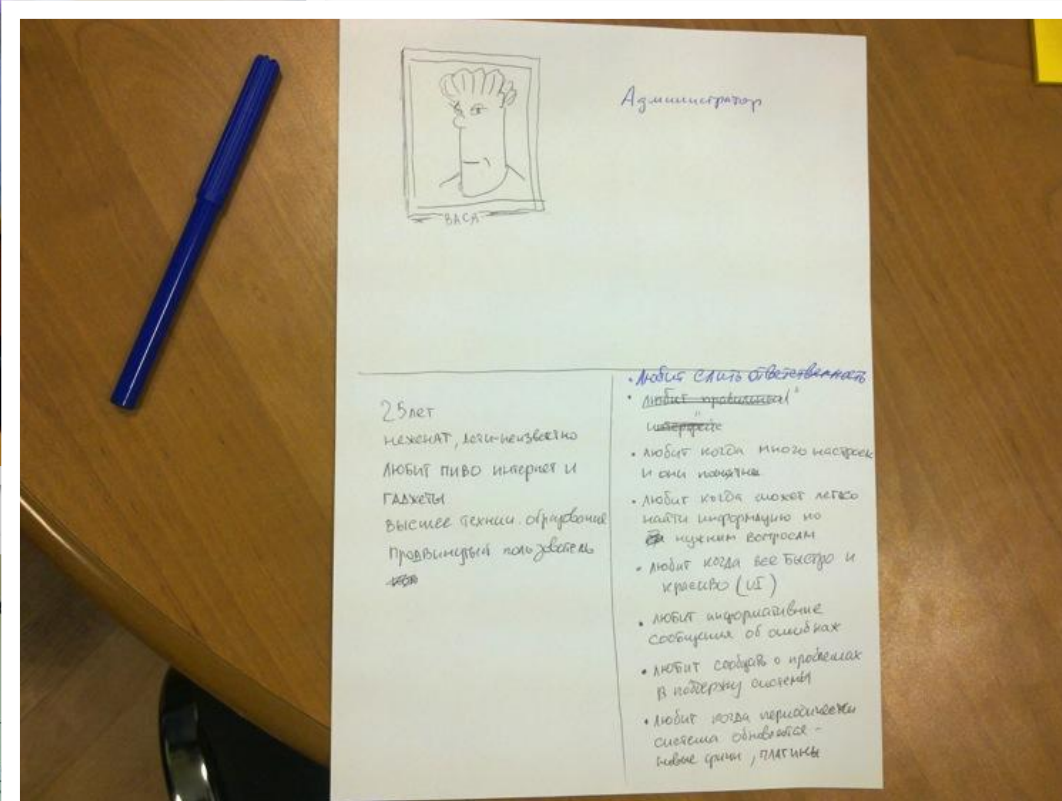 ВАСЯ
Администратор
25 лет
неженат, дети-неизвестно
любит пиво интернет и
гаджеты
высшее технич. образование
продвинутый пользователь
• любит слить ответственность
• любит правильный "
интерфейс"
• любит когда много настроек
и они понятны
• любит когда может легко
найти информацию по
нужним вопросам
• любит когда все быстро и
красиво (UI)
• любит информативние
сообщения об ошибках
• любит сообщать о проблемах
в поддержу системы
• любит когда периодически
система обновляется -
новые фичи, плагины